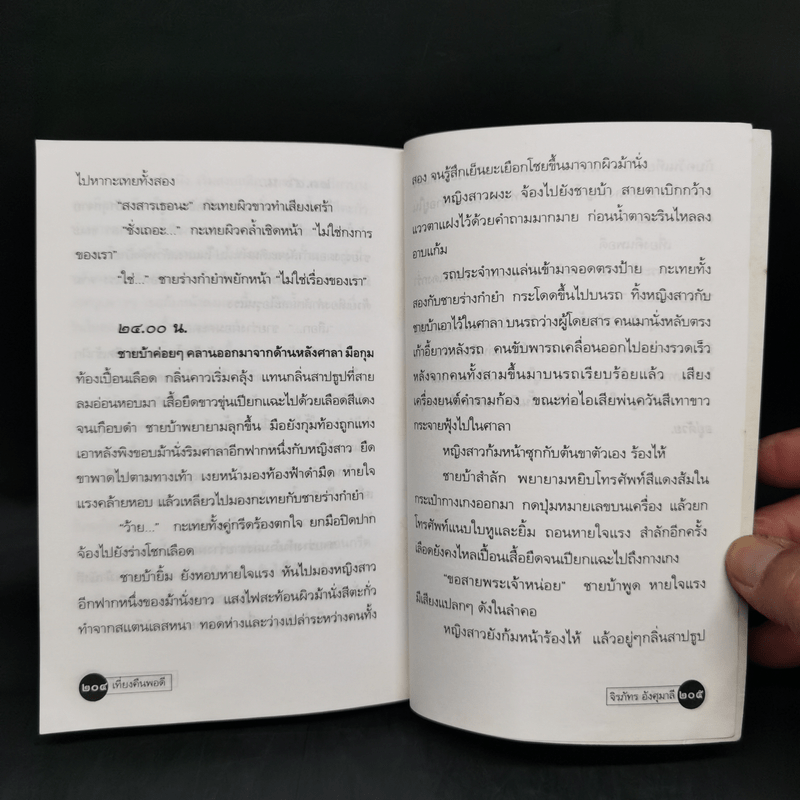 ไปหากะเทยทั้งสอง
"สงสารเธอนะ" กะเทยผิวขาวทำเสียงเศร้า
"ชั่งเถอะ..." กะเทยผิวคล้ำเชิดหน้า "ไม่ใช่กงการ
ของเรา"
"ใช่..." ชายร่างกำยำพยักหน้า "ไม่ใช่เรื่องของเรา"
๒๔.๐๐ น.
ชายบ้าค่อยๆ คลานออกมาจากด้านหลังศาลา มือกุม
ท้องเปื้อนเลือด กลิ่นคาวเริ่มคลุ้ง แทนกลิ่นสาปธูปที่สาย
ลมอ่อนหอบมา เสื้อยืดขาวขุ่นเปียกแฉะไปด้วยเลือดสีแดง
จนเกือบดำ ชายบ้าพยายามลุกขึ้น มือยังกุมท้องที่ถูกแทง
เอาหลังพิงขอบม้านั่งริมศาลาอีกฟากหนึ่งกับหญิงสาว ยืด
ขาพาดไปตามทางเท้า เงยหน้ามองท้องฟ้าดำมืด หายใจ
แรงคล้ายหอบ แล้วเหลียวไปมองกะเทยกับชายร่างกำยำ
"ว้าย..." กะเทยทั้งคู่กรีดร้องตกใจ ยกมือปิดปาก
จ้องไปยังร่างโชกเลือด
ชายบ้ายิ้ม ยังหอบหายใจแรง หันไปมองหญิงสาว
อีกฟากหนึ่งของม้านั่งยาว แสงไฟสะท้อนผิวม้านั่งสีตะกั่ว
ทำจากสแตนเลสหนา ทอดห่างและว่างเปล่าระหว่างคนทั้ง
๒๐๔ เที่ยงคืนพอดี
สอง จนรู้สึกเย็นยะเยือกโชยขึ้นมาจากผิวม้านั่ง
หญิงสาวผงะ จ้องไปยังชายบ้า สายตาเบิกกว้าง
แววตาแฝงไว้ด้วยคำถามมากมาย ก่อนน้ำตาจะรินไหลลง
อาบแก้ม
รถประจำทางแล่นเข้ามาจอดตรงป้าย กะเทยทั้ง
สองกับชายร่างกำยำ กระโดดขึ้นไปบนรถ ทิ้งหญิงสาวกับ
ชายบ้าเอาไว้ในศาลา บนรถว่างผู้โดยสาร คนเมานั่งหลับตรง
เก้าอี้ยาวหลังรถ คนขับพารถเคลื่อนออกไปอย่างรวดเร็ว
หลังจากคนทั้งสามขึ้นมาบนรถเรียบร้อยแล้ว เสียง
เครื่องยนต์คำรามก้อง ขณะท่อไอเสียพ่นควันสีเทาขาว
กระจายฟุ้งไปในศาลา
หญิงสาวก้มหน้าซุกกับต้นขาตัวเอง ร้องไห้
ชายบ้าสำลัก พยายามหยิบโทรศัพท์สีแดงส้มใน
กระเป๋ากางเกงออกมา กดปุ่มหมายเลขบนเครื่อง แล้วยก
โทรศัพท์แนบใบหูและยิ้ม ถอนหายใจแรง สำลักอีกครั้ง
เลือดยังคงไหลเปื้อนเสื้อยืดจนเปียกแฉะไปถึงกางเกง
"ขอสายพระเจ้าหน่อย" ชายบ้าพูด หายใจแรง
มีเสียงแปลกๆ ดังในลำคอ
หญิงสาวยังก้มหน้าร้องไห้ แล้วอยู่ๆกลิ่นสาปธูป
จิรภัทร อังศุมาลี ๒๐๕